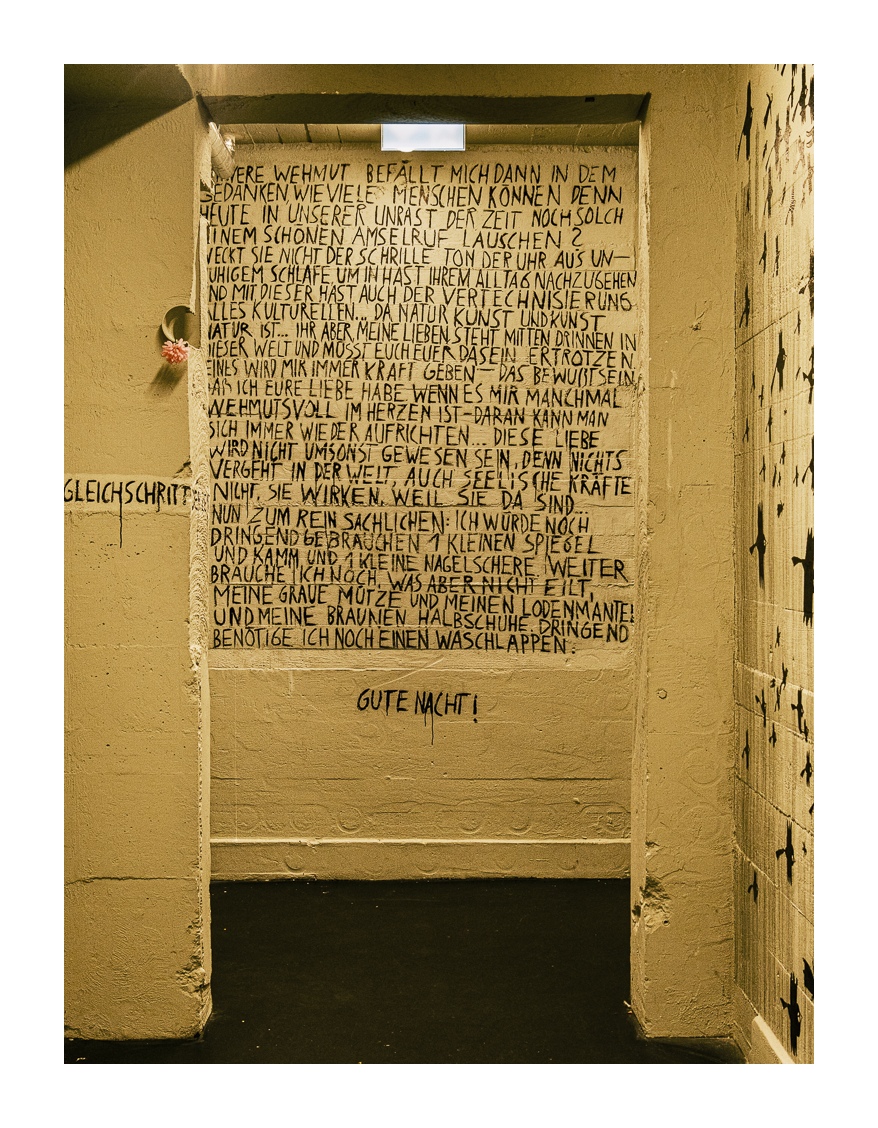 WERE WEHMUT BEFÄLLT MICH DANN IN DEM
GEDANKEN, WIE VIELE MENSCHEN KÖNNEN DENN
HEUTE IN UNSERER UNRAST DER ZEIT NOCH SOLCH
EINEM SCHÖNEN AMSELRUF LAUSCHEN?
WECKT SIE NICHT DER SCHRILLE TON DER UHR AUS UN–
UHIGEM SCHLAFE, UM IN HAST IHREM ALLTAG NACHZUGEHEN
ND MIT DIESER HAST AUCH DER VERTECHNISIERUNG
LLES KULTURELLEN... DA NATUR KUNST UND KUNST
NATUR IST... IHR ABER, MEINE LIEBEN, STEHT MITTEN DRINNEN IN
DIESER WELT UND MÜSST EUCH EUER DASEIN ERTROTZEN.
EINES WIRD MIR IMMER KRAFT GEBEN – DAS BEWUßTSEIN,
DAß ICH EURE LIEBE HABE. WENN ES MIR MANCHMAL
WEHMUTSVOLL IM HERZEN IST – DARAN KANN MAN
SICH IMMER WIEDER AUFRICHTEN... DIESE LIEBE
WIRD NICHT UMSONST GEWESEN SEIN, DENN NICHTS
VERGEHT IN DER WELT, AUCH SEELISCHE KRÄFTE
NICHT, SIE WIRKEN, WEIL SIE DA SIND...
NUN ZUM REIN SACHLICHEN: ICH WÜRDE NOCH
DRINGEND GEBRAUCHEN 1 KLEINEN SPIEGEL
UND KAMM UND 1 KLEINE NAGELSCHERE. WEITER
BRAUCHE ICH NOCH, WAS ABER NICHT EILT,
MEINE GRAUE MÜTZE UND MEINEN LODENMANTEL
UND MEINE BRAUNEN HALBSCHUHE. DRINGEND
BENÖTIGE ICH NOCH EINEN WASCHLAPPEN.
GUTE NACHT!
GLEICHSCHRITT